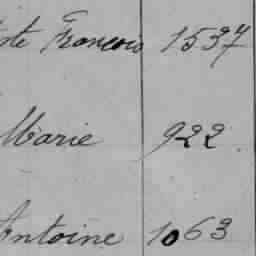 ste François 1537
Marie 922
Antoine 1063